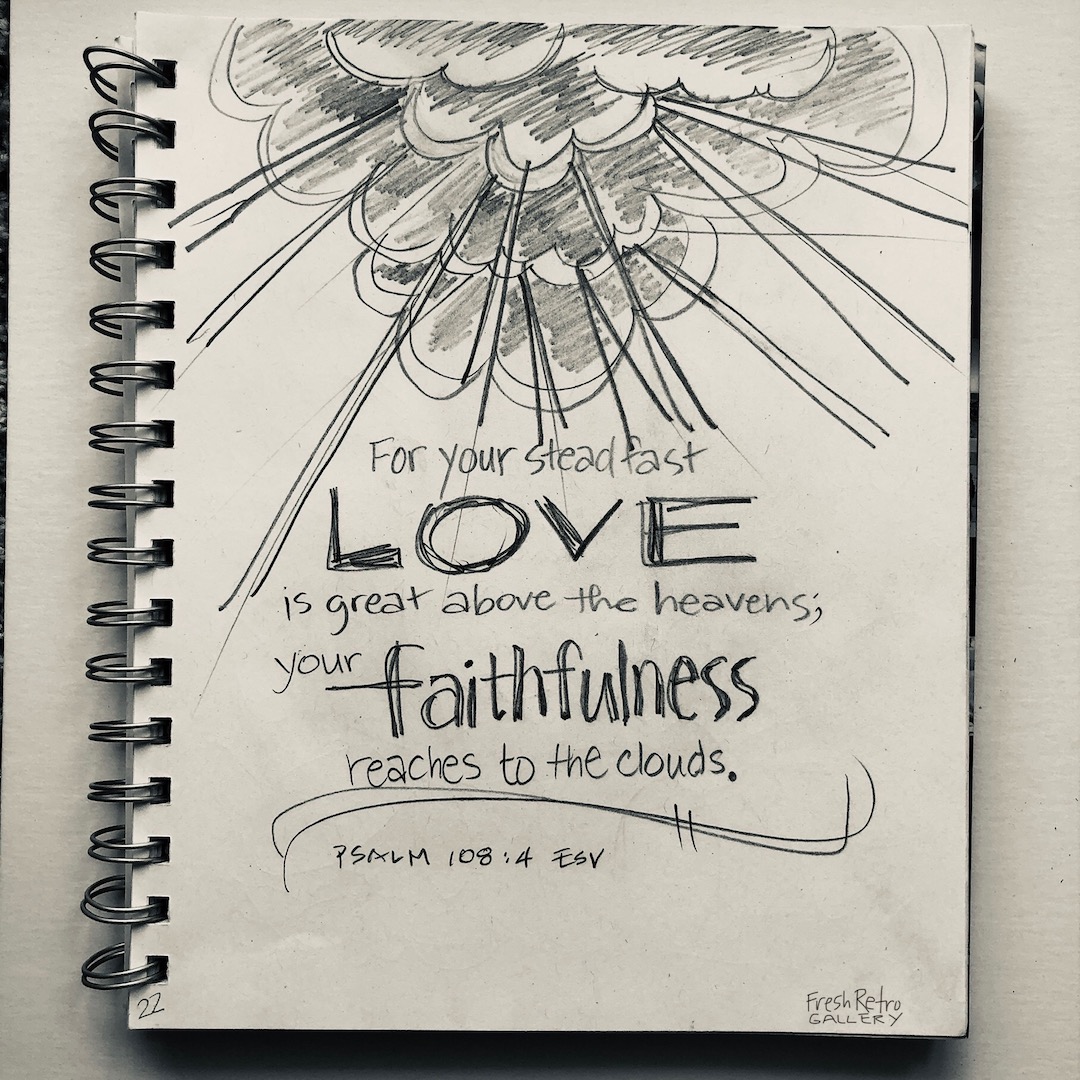 For your steadfast
LOVE
is great above the heavens;
your faithfulness
reaches to the clouds.
PSALM 108:4 ESV
22
Fresh Retro
GALLERY